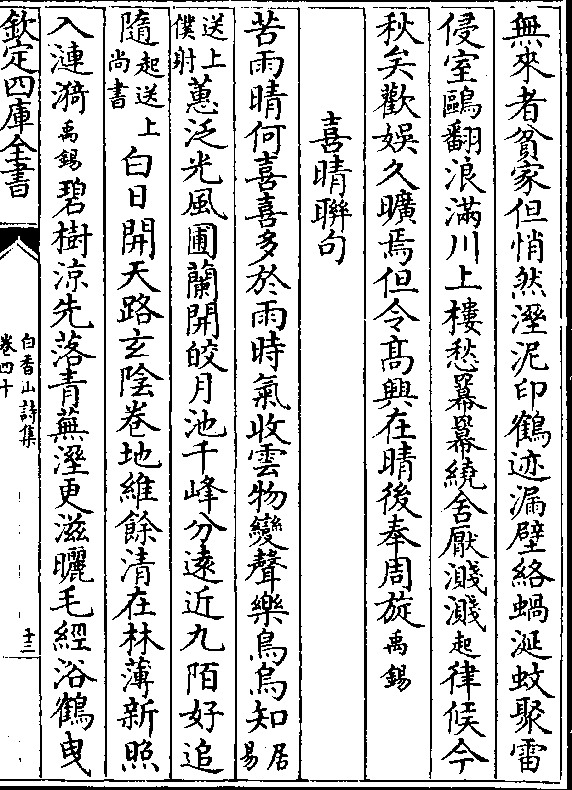 無來者貧家但悄然溼泥印鶴迹漏壁絡蝸涎蚊聚雷
侵室鷗翻浪滿川上樓愁羃羃繞舍厭濺濺起律候今
秋矣歡娛久曠焉但令高興在晴後奉周旋禹錫
喜晴聯句
苦雨晴何喜喜多於雨時氣收雲物變聲樂鳥烏知居易
送上僕射蕙泛光風圃蘭開皎月池千峰分遠近九陌好追
隨起送上尚書白日開天路玄陰卷地維餘清在林薄新照
入漣漪禹錫碧樹涼先落青蕪溼更滋曬毛經浴鶴曳
欽定四庫全書
白香山詩集
卷四十
十三